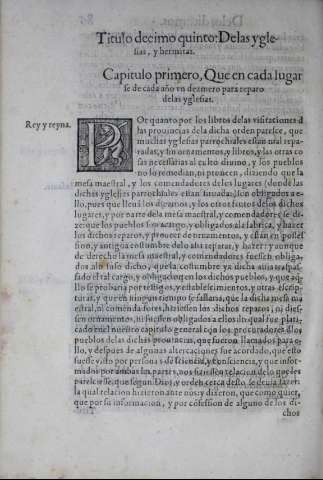 Titulo decimo quinto: De las ygle-
sias, y hermitas.
Capitulo primero, Que en cada lugar
se de cada año vn dezmero para reparo
de las yglesias.
Rey y reyna.
POr quanto por los libros de las visitaciones d
las prouincias de la dicha orden parece, que
muchas yglesias parrochiales estan mal repa-
radas, y sin ornamentos, y libros, y las otras co
sas necessarias al culto diuino, y los pueblos
no lo remedian, ni proueen, diziendo que la
mesa maestral, y los comendadores de los lugares (donde las
dichas yglesias parrochiales estan situadas) son obligados a e-
llo, pues que lleuā los diezmos, y los otros frutos de los dichos
lugares, y por parte de la mesa maestral, y comendadores se di-
ze que los pueblos son a cargo, y obligados a la fabrica, y hazer
los dichos reparos, y prouer de ornamentos, y estan en posses
sion, y antigua costumbre de lo assi reparar, y hazer: y aunque
de derecho la mesa maestral, y comendadores fuessen obliga-
dos a lo suso dicho, que la costumbre ya dicha auia traspas-
sado el tal cargo, y obligacion en los dichos pueblos, y que assi
se prouaria por testigos, y establecimientos, y otras escrip-
turas, y que en ningun tiempo se fallaria, que la dicha mesa ma
estral, ni comendadores, hiziessen los dichos reparos, ni dies-
sen ornamentos, ni fuessen obligados a ellos: lo qual fue plati-
cado en el nuestro capitulo general con los procuradores dlos
pueblos de las dichas prouincias, que fueron llamados para e-
llo, y despues de algunas altercaciones fue acordado, que esto
fuesse visto por personas de sciencia, y consciencia, y que infor-
mados por ambas las partes, nos fiziessen relacion de lo que les
pareciesse que segun Dios, y orden cerca desto se deuia fazer:
la qual relacion hizieron ante nos: y dixeron, que como quier,
que por su informacion, y por cōfession de alguno de los di-
chos